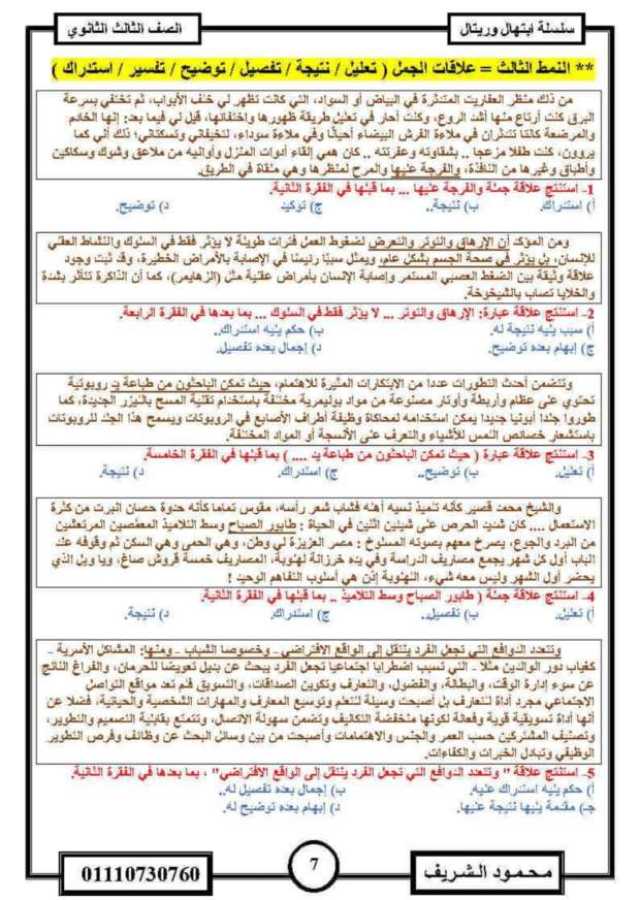 سلسلة ابتهال وريتال
الصف الثالث الثانوي
** النمط الثالث = علاقات الجمل ( تعليل / نتيجة / تفصيل / توضيح / تفسير / استدراك )
من ذلك منظر العفاريت المتدثرة في البياض أو السواد، التي كانت تظهر لي خلف الأبواب، ثم تختفي بسرعة
البرق كنت أرتاع منها أشد الروع، وكنت أحار في تعليل طريقة ظهورها واختفائها، قيل لي فيما بعد: إنها الخادم
والمرضعة كانتا تتدثران في ملاءة الفرش البيضاء أحيانًا وفي ملاءة سوداء، لتخيفاني وتسكتاني؛ ذلك أني كما
يروون، كنت طفلا مزعجا .. بشقاوته وعفرتته .. كان همي إلقاء أدوات المنزل وأوانيه من ملاعق وشوك وسكاكين
وأطباق وغيرها من النافذة، والفرجة عليها والمرح لمنظرها وهي ملقاة في الطريق.
1- استنتج علاقة جملة والفرجة عليها ... بما قبلها في الفقرة الثانية.
أ) استدراك. ب) نتيجة.. ج) توكيد د) توضيح.
ومن المؤكد أن الإرهاق والتوتر والتعرض لضغوط العمل فترات طويلة لا يؤثر فقط في السلوك والنشاط العقلي
للإنسان، بل يؤثر في صحة الجسم بشكل عام، ويمثل سببًا رئيسًا في الإصابة بالأمراض الخطيرة، وقد ثبت وجود
علاقة وثيقة بين الضغط العصبي المستمر وإصابة الإنسان بأمراض عقلية مثل (الزهايمر)، كما أن الذاكرة تتأثر بشدة
والخلايا تصاب بالشيخوخة.
2- استنتج علاقة عبارة: الإرهاق والتوتر ... لا يؤثر فقط في السلوك ... بما بعدها في الفقرة الرابعة.
أ) سبب يليه نتيجة له. ب) حكم يليه استدراك..
ج) إبهام بعده توضيح. د) إجمال بعده تفصيل.
وتتضمن أحدث التطورات عددا من الابتكارات المثيرة للاهتمام، حيث تمكن الباحثون من طباعة يد روبوتية
تحتوي على عظام وأربطة وأوتار مصنوعة من مواد بوليمرية مختلفة باستخدام تقنية المسح بالليزر الجديدة، كما
طوروا جلدا أيونيا جديدا يمكن استخدامه لمحاكاة وظيفة أطراف الأصابع في الروبوتات ويسمح هذا الجلد للروبوتات
باستشعار خصائص اللمس للأشياء والتعرف على الأنسجة أو المواد المختلفة.
3- استنتج علاقة عبارة ( حيث تمكن الباحثون من طباعة يد .... ) بما قبلها في الفقرة الخامسة.
أ) تعليل. ب) توضيح.. ج) استدراك. د) نتيجة.
والشيخ محمد قصير كأنه تلميذ نسيه أهله فشاب شعر رأسه، مقوس تماما كأنه حدوة حصان البرت من كثرة
الاستعمال .... كان شديد الحرص على شيئين اثنين في الحياة : طابور الصباح وسط التلاميذ المعفصين المرتعشين
من البرد والجوع، يصرخ معهم بصوته المسلوخ : مصر العزيزة لي وطن، وهي الحمى وهي السكن ثم وقوفه عند
الباب أول كل شهر يجمع مصاريف الدراسة وفي يده خرزانة لهلوبة، المصاريف خمسة قروش صاغ، ويا ويل الذي
يحضر أول الشهر وليس معه شيء، اللهلوبة إذن هي أسلوب التفاهم الوحيد !
4- استنتج علاقة جملة ( طابور الصباح وسط التلاميذ .. بما قبلها في الفقرة الثانية.
أ) تعليل. ب) تفصيل.. ج) استدراك. د) نتيجة.
وتتعدد الدوافع التي تجعل الفرد ينتقل إلى الواقع الافتراضي - وخصوصا الشباب - ومنها: المشاكل الأسرية -
كغياب دور الوالدين مثلا - التي تسبب اضطرابا اجتماعيا تجعل الفرد يبحث عن بديل تعويضا للحرمان، والفراغ الناتج
عن سوء إدارة الوقت، والبطالة، والفضول، والتعارف وتكوين الصداقات، والتسويق فلم تعد مواقع التواصل
الاجتماعي مجرد أداة للتعارف بل أصبحت وسيلة لتعلم وتوسيع المعارف والمهارات الشخصية والحياتية، فضلا عن
أنها أداة تسويقية قوية وفعالة لكونها منخفضة التكاليف وتضمن سهولة الاتصال، وتتمتع بقابلية التصميم والتطوير،
وتصنيف المشتركين حسب العمر والجنس والاهتمامات وأصبحت من بين وسائل البحث عن وظائف وفرص التطوير
الوظيفي وتبادل الخبرات والكفاءات.
5- استنتج علاقة " وتتعدد الدوافع التي تجعل الفرد ينتقل إلى الواقع الافتراضي" ، بما بعدها في الفقرة الثانية.
أ) حكم يليه استدراك عليه. ب) إجمال بعده تفصيل له..
جـ) مقدمة يليها نتيجة عليها. د) إبهام بعده توضيح له.
محمود الشريف
7
01110730760